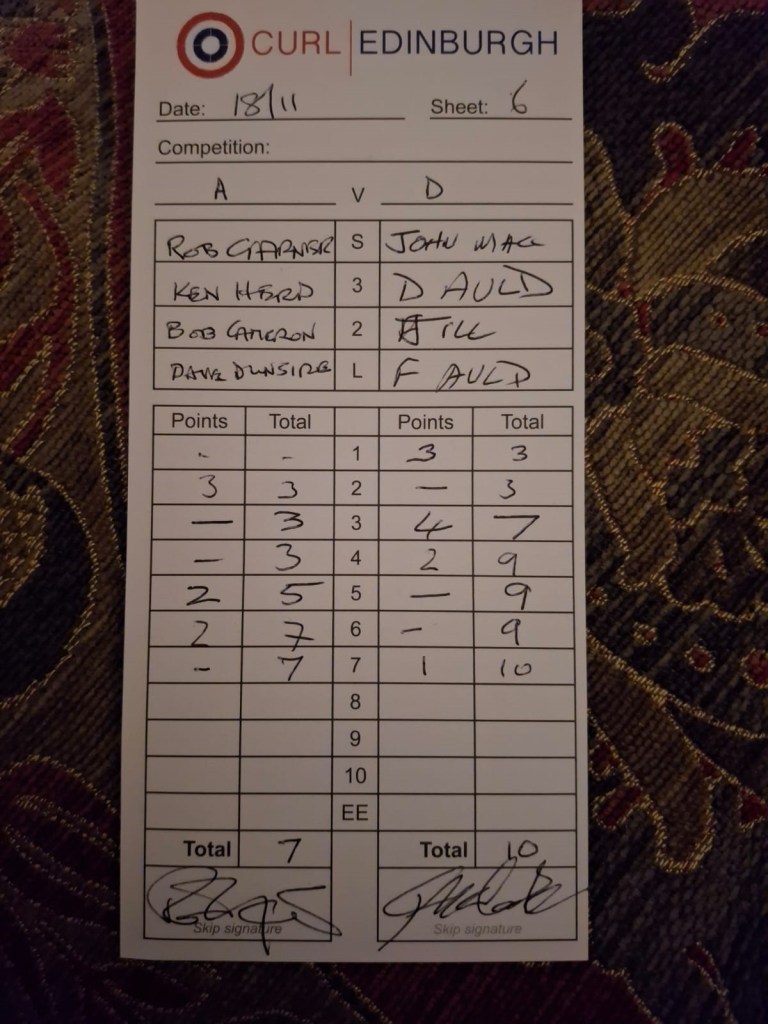 CURL | EDINBURGH
Date: 18/11 Sheet: 6
Competition:
A V D
ROB GARNER S JOHN MACC
KEN HERD 3 D AULD
BOB CAMERON 2 JILL
DAVE DUNSIRE L F AULD
Points Total Points Total
- - 1 3 3
3 3 2 — 3
— 3 3 4 7
- 3 4 2 9
2 5 5 — 9
2 7 6 - 9
- 7 7 1 10
8
9
10
EE
Total 7 Total 10
Skip signature Skip signature